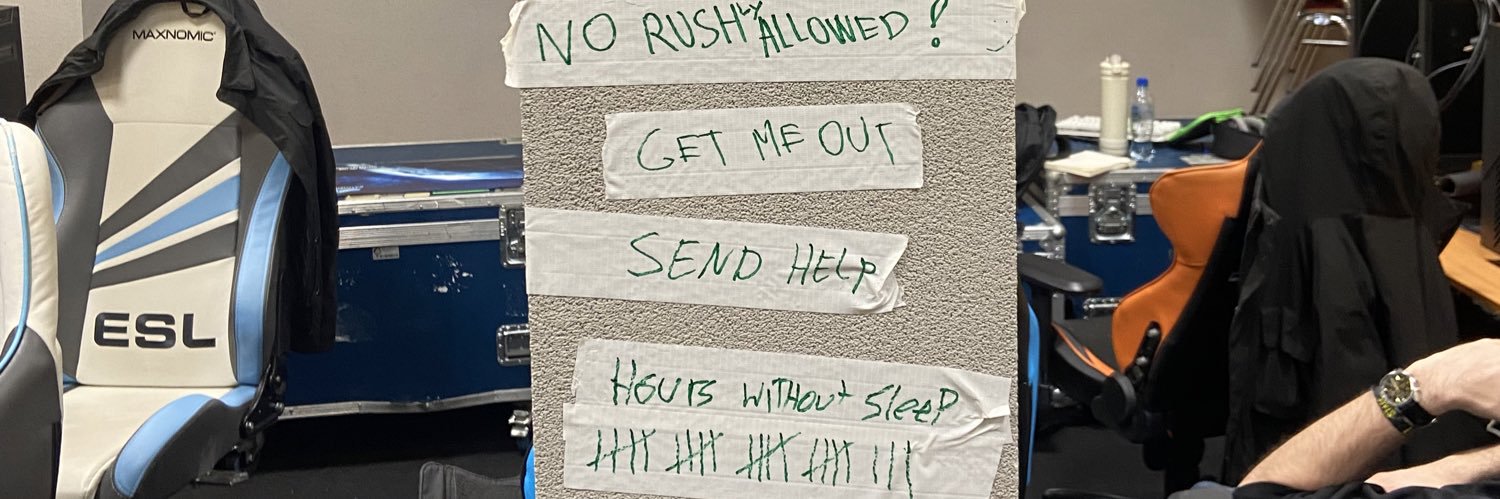 MAXNOMIC
ESL
NO RUSHLY ALLOWED !
GET ME OUT
SEND HELP
Hours without Sleep